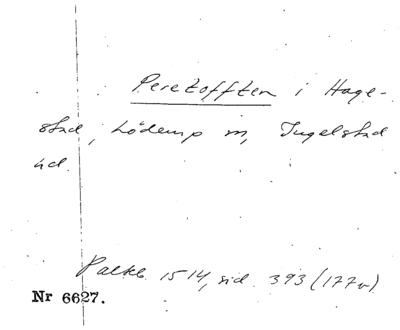 Peretofften i Hage-
stad, Löderup sn, Ingelstad
hd.
Palteb. 1514, sid. 393 (177v)
Nr 6627.